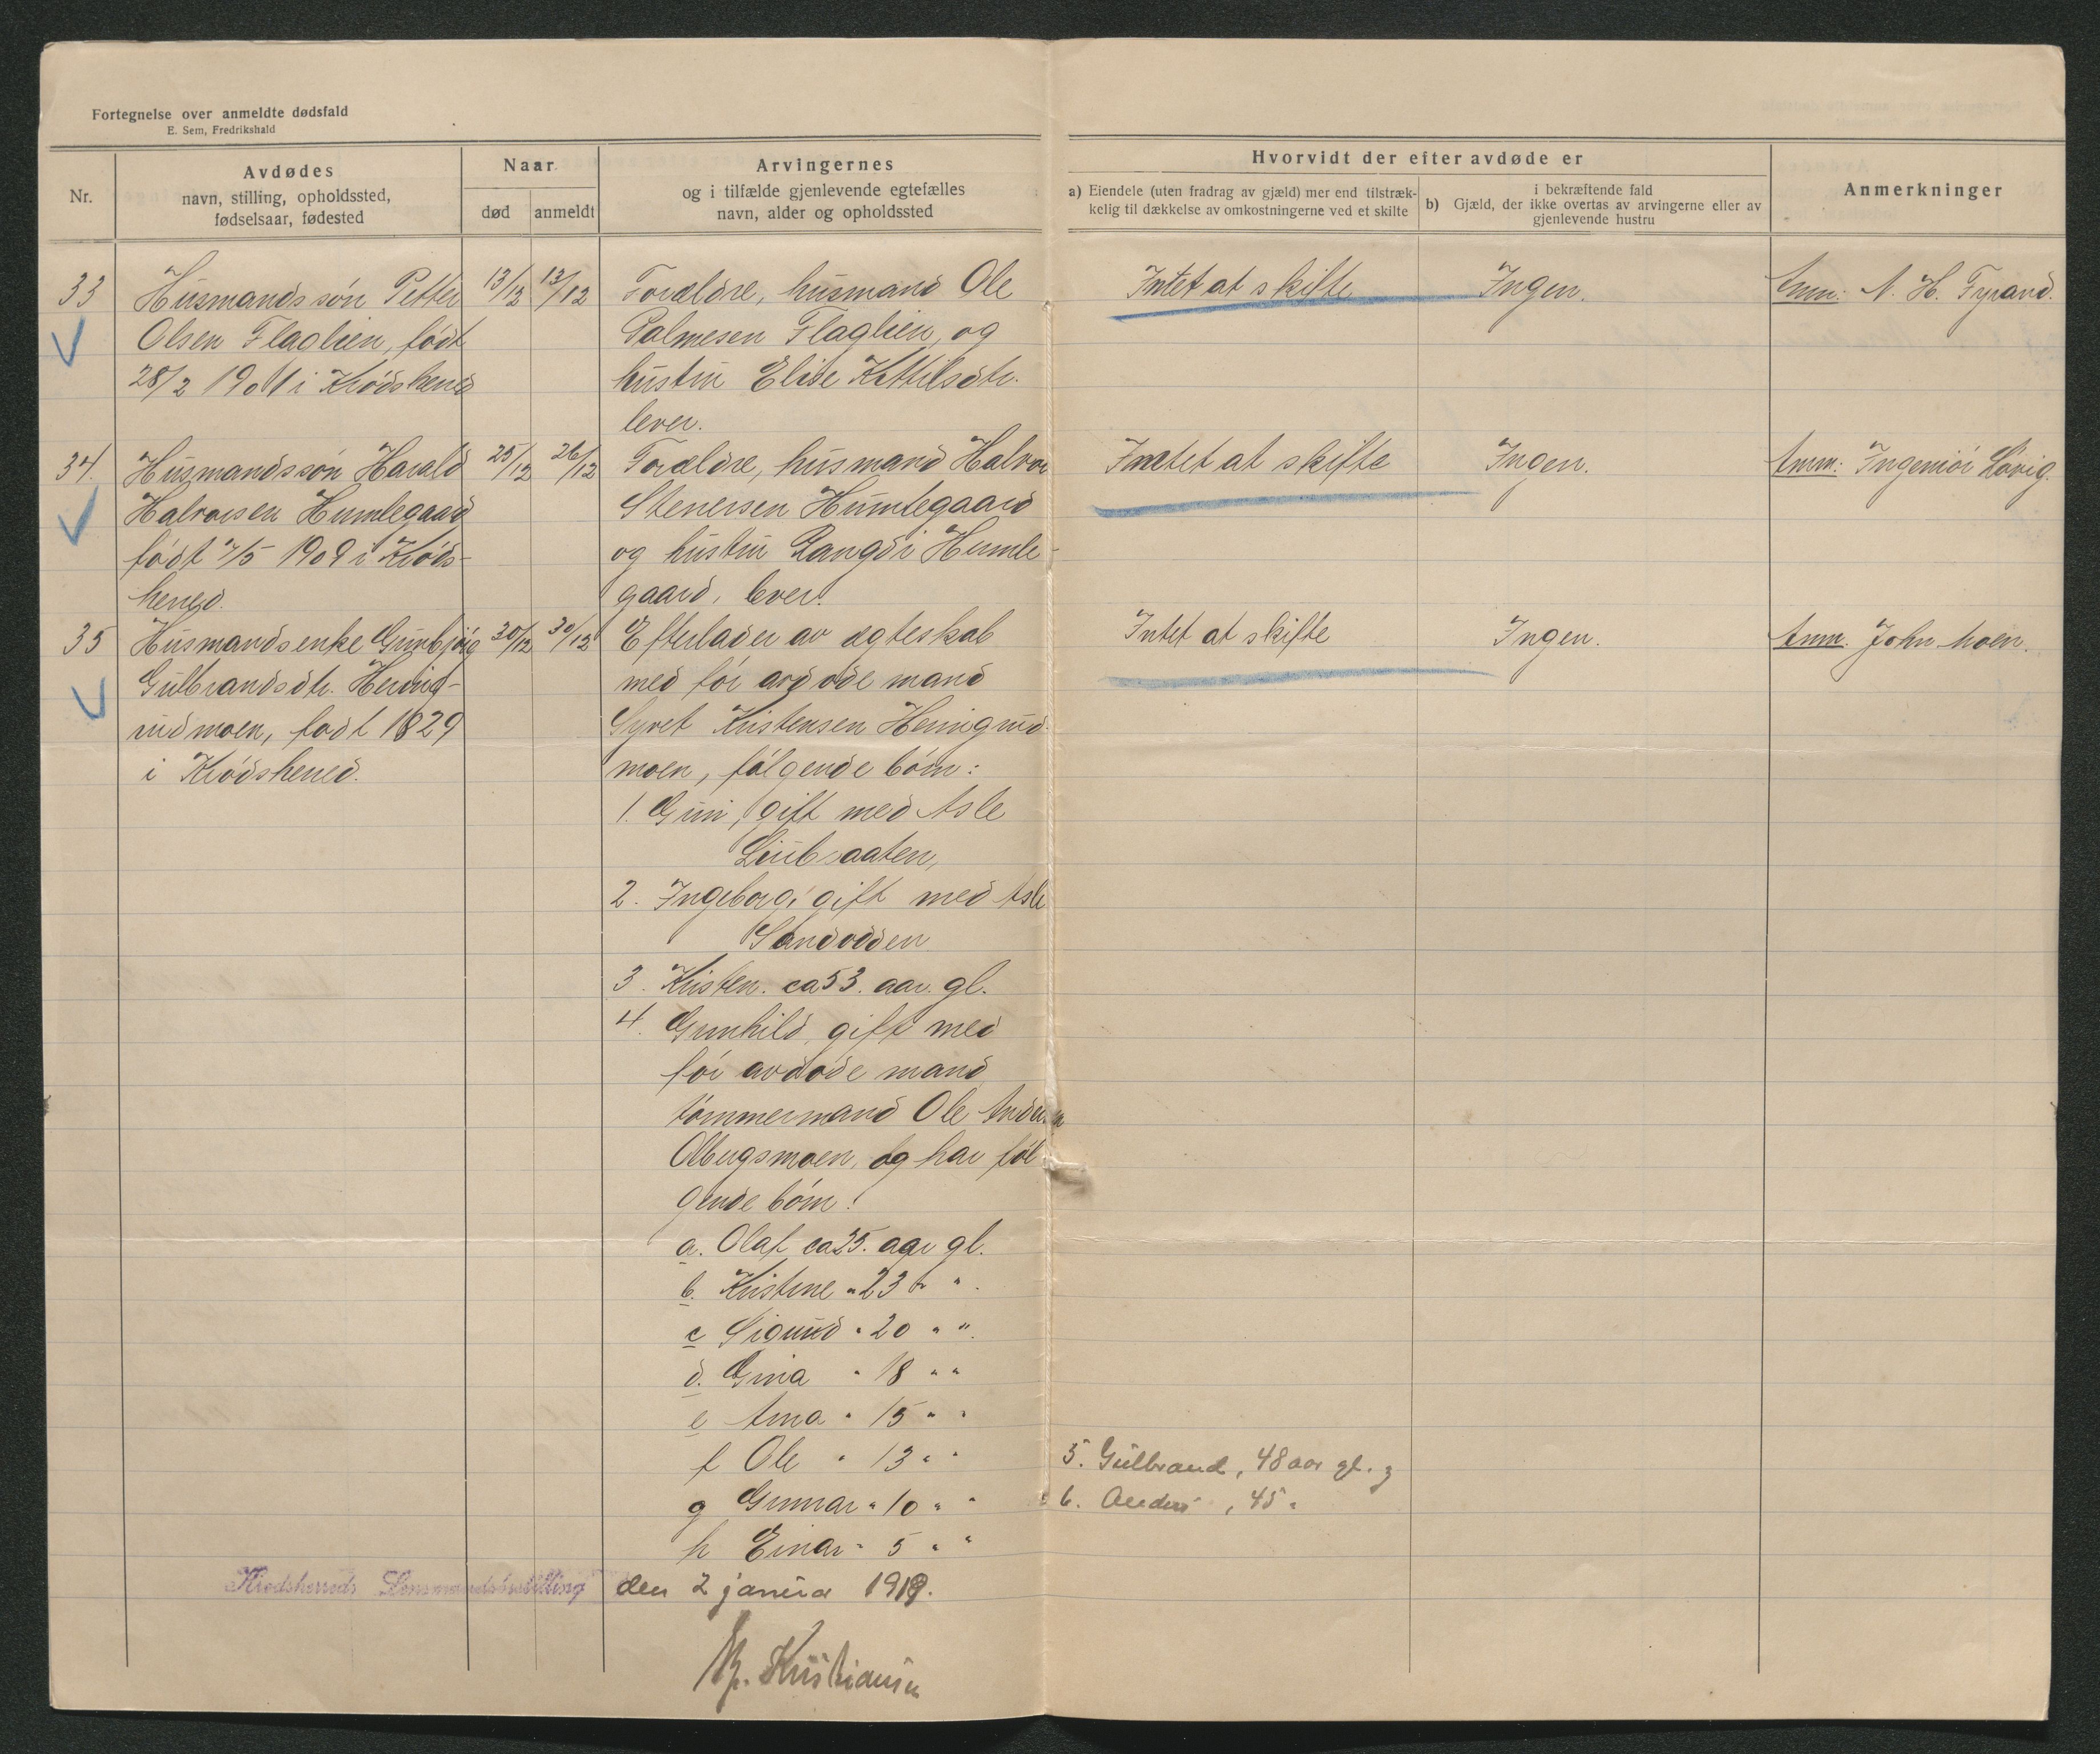 Fortegnelse over anmeldte dødsfald
E. Sem, Fredrikshald
Nr.
Avdødes
navn, stilling, opholdssted,
fødselsaar, fødested
Naar
død
anmeldt
Arvingernes
og i tilfælde gjenlevende egtefælles
navn, alder og opholdssted
Hvorvidt der efter avdøde er
a) Eiendele (uten fradrag av gjæld) mer end tilstræk-
kelig til dækkelse av omkostningerne ved et skifte
i bekræftende fald
b) Gjæld, der ikke overtas av arvingerne eller av
gjenlevende hustru
Anmerkninger
33
Husmandssøn Petter
Olsen Flaglien, født
28/2 1901 i Krødshered
13/12
13/12
Forældre, husmand Ole
Palmesen Flaglien, og
hustru Elise Kittilsdtr.
lever.
Intet at skifte
Ingen.
Anm: N. H. Fyrand.
34.
Husmandssøn Harald
Halvorsen Humlegaard
født 7/5 1909 i Krøds-
hered.
25/12
26/12
Forældre, husmand Halvor
Stenersen Humlegaard
og hustru Rangdi Humle-
gaard, lever.
Intet at skifte
Ingen.
Anm: Ingeniør Løvig.
35
Husmandsenke Gunbjørg
Gulbrandsdtr. Hering-
rudmoen, født 1829
i Krødshered.
30/12
30/12
Efterlader av ægteskab
med før avdøde mand
Syvert Kristensen Heringrud-
moen, følgende børn:
1. Guri, gift med Asle
Ljubraaten,
2. Ingeborg, gift med Asle
Sandodden
3. Kristen. ca 53. aar. gl.
4. Gunhild, gift med
før avdøde mand
tømmermand Ole Andersen
Olbergsmoen, og har føl-
gende børn:
a. Olaf ca 25. aar gl.
b. Kristine " 23 " "
c Sigurd " 20 " "
d. Gina " 18 " "
e Anna " 15 " "
f Ole " 13 " "
g Gunnar " 10 " "
h Einar " 5 " "
5. Gulbrand, 48 aar gl. og
6. Anders, 45 "
Intet at skifte
Ingen.
Anm. John Moen.
Krødsherreds Lensmandsbestilling den 2 januar 1919.
Kristiansen